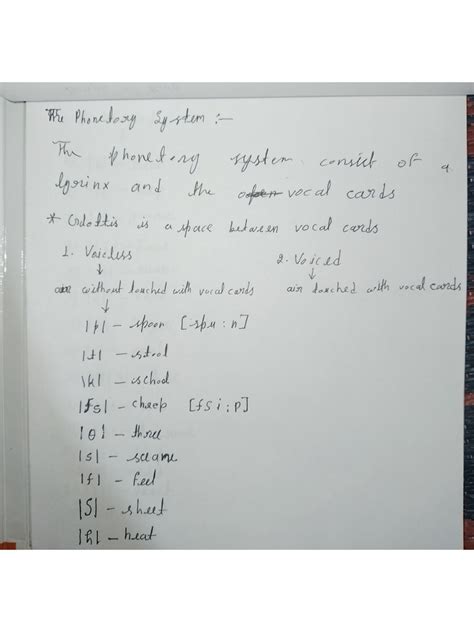 The Phonetory System :-
The phonetory system consist of a
lyrinx and the vocal cards
* Glottis is a space between vocal cards
1. Voicless 2. Voiced
↓ ↓
air without touched with vocal cards air touched with vocal cards
↓
|p| - spoon [spu:n]
|t| - stool
|k| - school
|ʧ| - cheep [ʧi:p]
|θ| - three
|s| -
|f| - feel
|ʃ| - sheet
|h| - heat